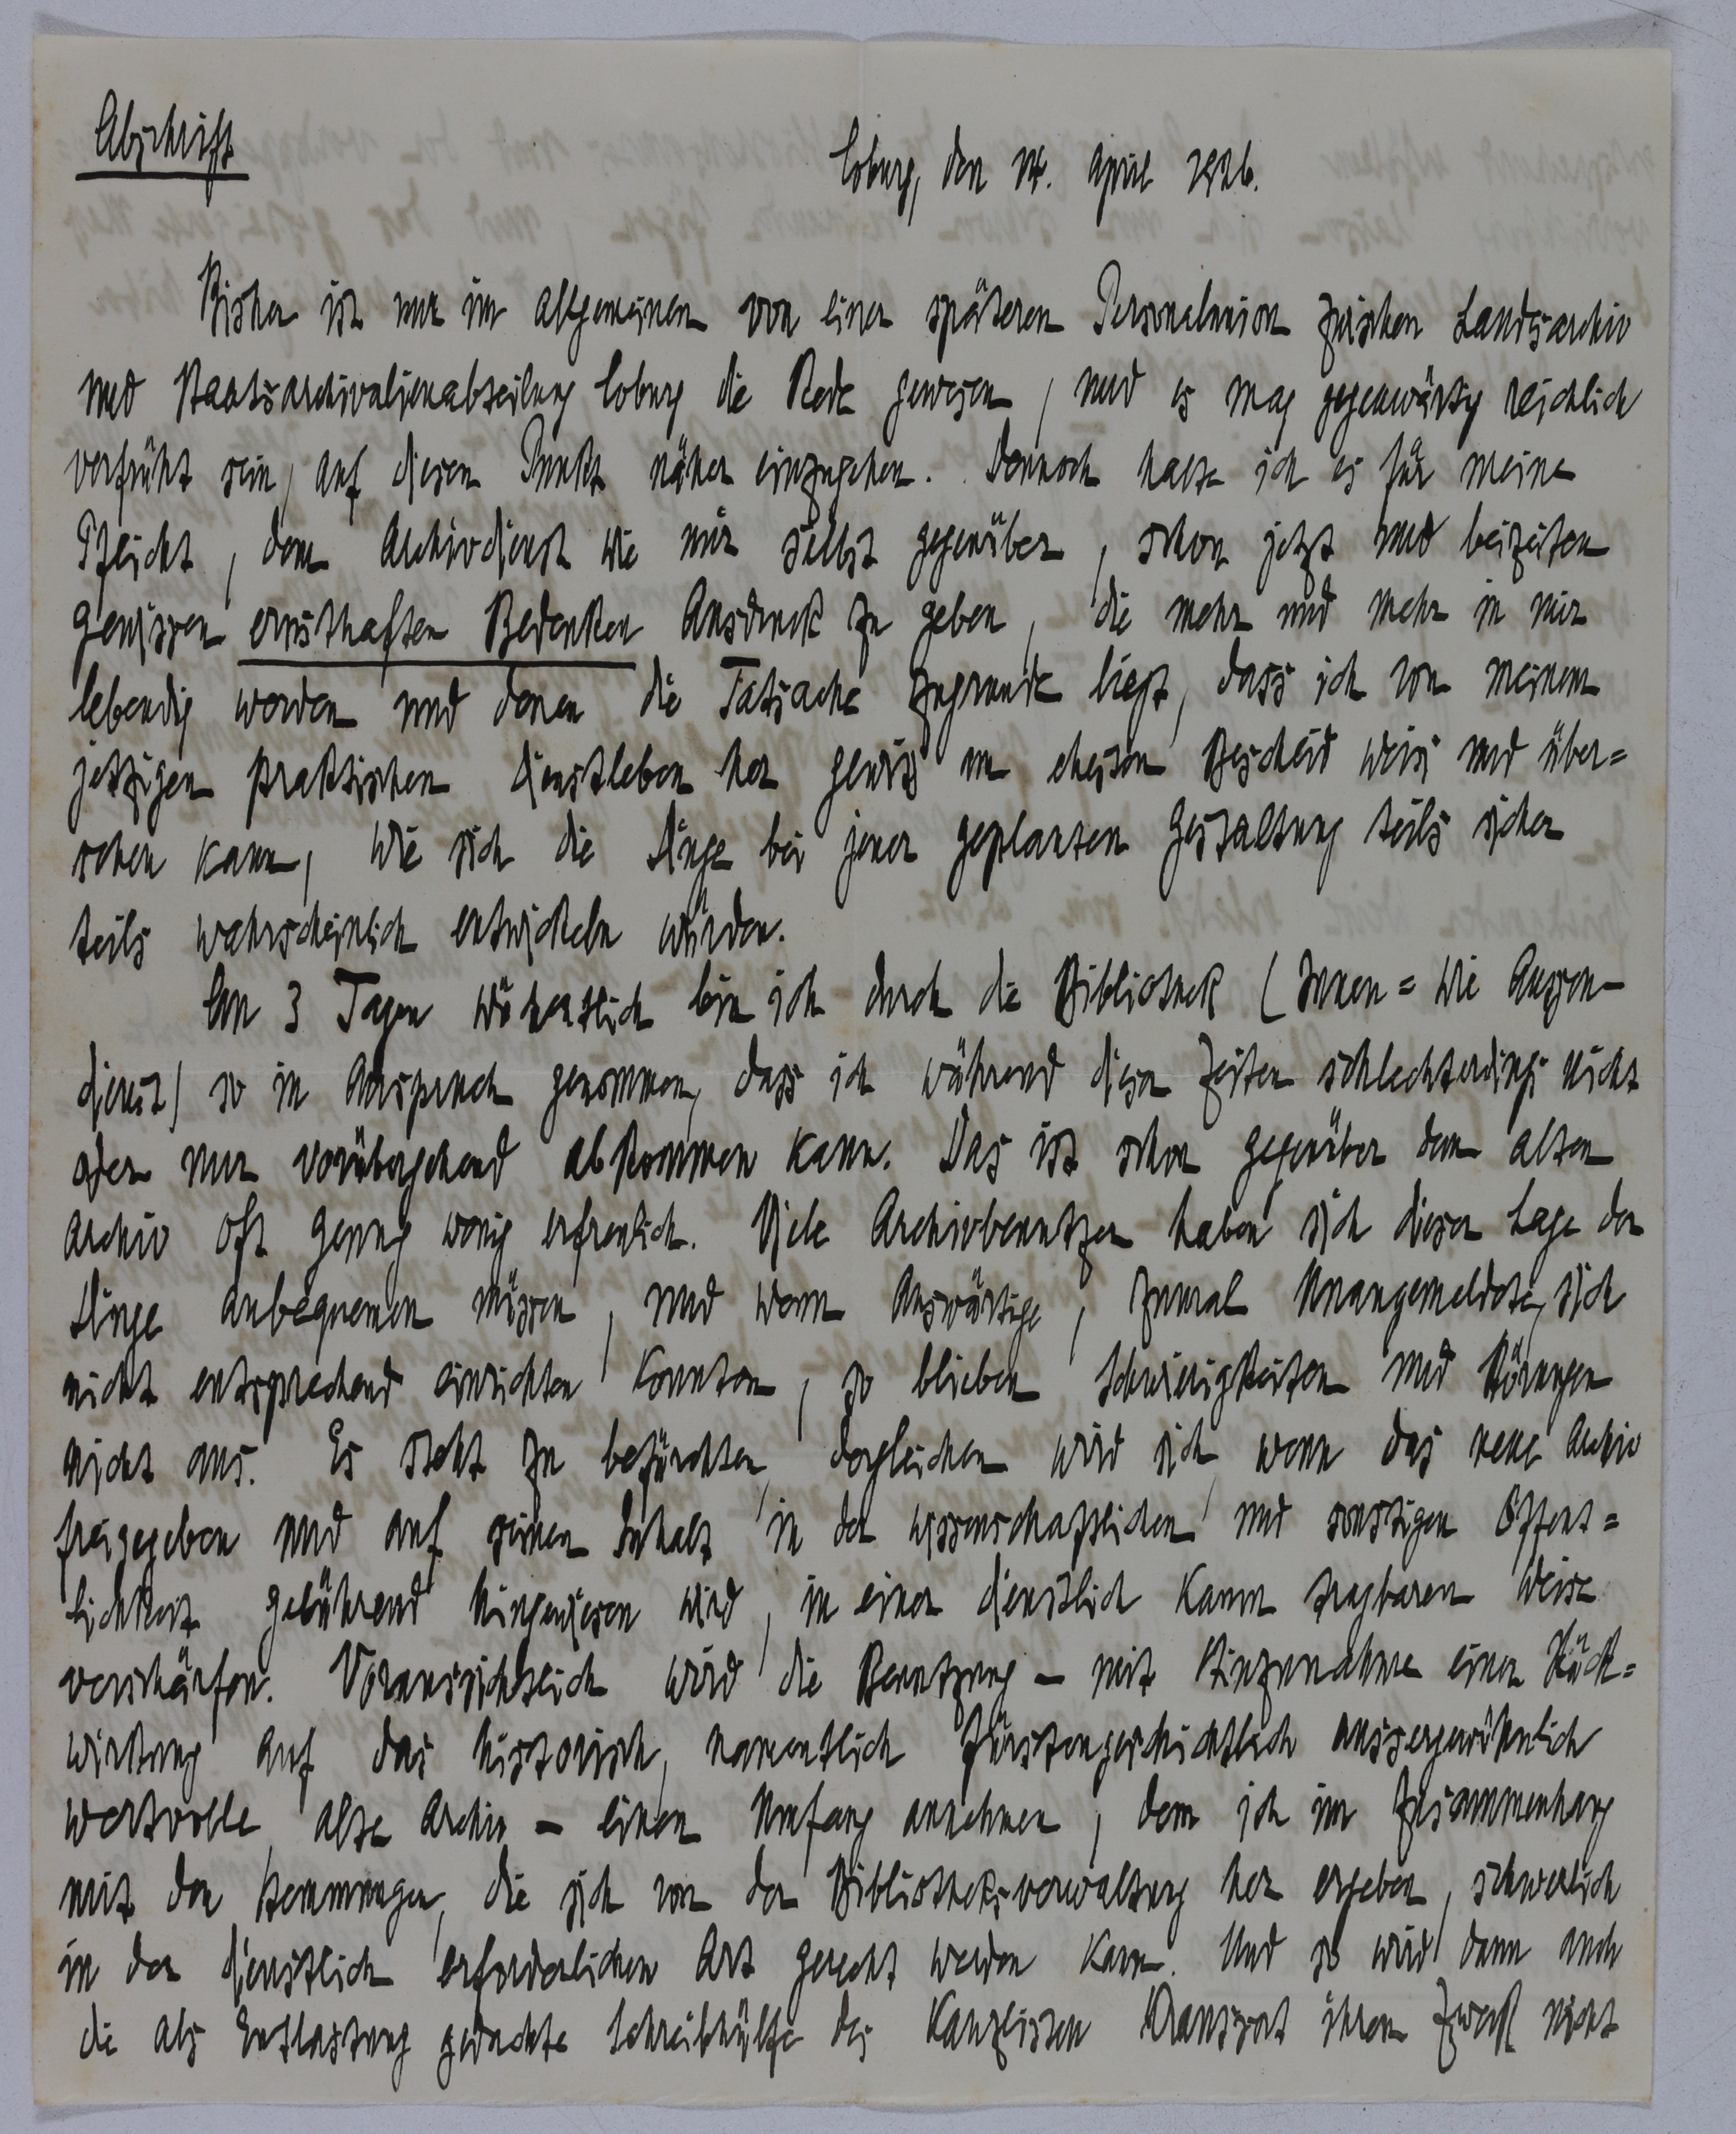 Abschrift
Coburg, den 14. April 1926.
Bisher ist nur im allgemeinen von einer späteren Personalunion zwischen Landesarchiv
und Staatsarchivalienabteilung Coburg die Rede gewesen, und es mag gegenwärtig reichlich
verfrüht sein, auf diesen Punkt näher einzugehen. Dennoch halte ich es für meine
Pflicht, dem Archivdienst wie mir selbst gegenüber, schon jetzt und beizeiten
gewissen ernsthaften Bedenken Ausdruck zu geben, die mehr und mehr in mir
lebendig worden und denen die Tatsache zugrunde liegt, dass ich von meinem
jetzigen praktischen Dienstleben her gewiss am ehesten Bescheid weiss und über=
sehen kann, wie sich die Dinge bei jener geplanten Gestaltung teils sicher
teils wahrscheinlich entwickeln würden.
An 3 Tagen wöchentlich bin ich durch die Bibliothek (Innen= wie Aussen-
dienst) so in Anspruch genommen, dass ich während dieser Zeiten schlechterdings nicht
oder nur vorübergehend abkommen kann. Das ist schon gegenüber dem alten
Archiv oft genug wenig erfreulich. Viele Archivbenutzer haben sich dieser Lage der
Dinge anbequemen müssen, und wenn Auswärtige, zumal Unangemeldete, sich
nicht entsprechend einrichten konnten, so blieben Schwierigkeiten und Störungen
nicht aus. Es steht zu befürchten, dergleichen wird sich, wenn das neue Archiv
freigegeben und auf seinen Inhalt in der wissenschaftlichen und sonstigen Öffent=
lichkeit gebührend hingewiesen wird, in einer dienstlich kaum tragbaren Weise
verschärfen. Voraussichtlich wird die Benutzung - mit Hinzunahme einer Rück=
wirkung auf das historisch, namentlich fürstengeschichtlich aussergewöhnlich
wertvolle alte Archiv - einen Umfang annehmen, dem ich im Zusammenhang
mit den Hemmungen, die sich von der Bibliotheksverwaltung her ergeben, schwerlich
in der dienstlich erforderlichen Art gerecht werden kann. Und so wird denn auch
die als Entlastung gedachte Schreibhülfe des Kanzlisten ihren Zweck nicht